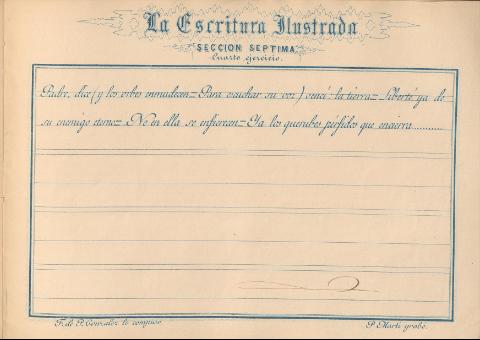 La Escritura Ilustrada
SECCION SEPTIMA
Cuarto ejercicio.
Padre, dice (y los orbes enmudecen = Para escuchar su voz) vencí: la tierra = Liberté ya de
su enemigo eterno = No en ella se enfierecen = Ya los querubes pérfidos que encierra...........
F. de P. Gonzalez lo compuso
P. Martí grabo.